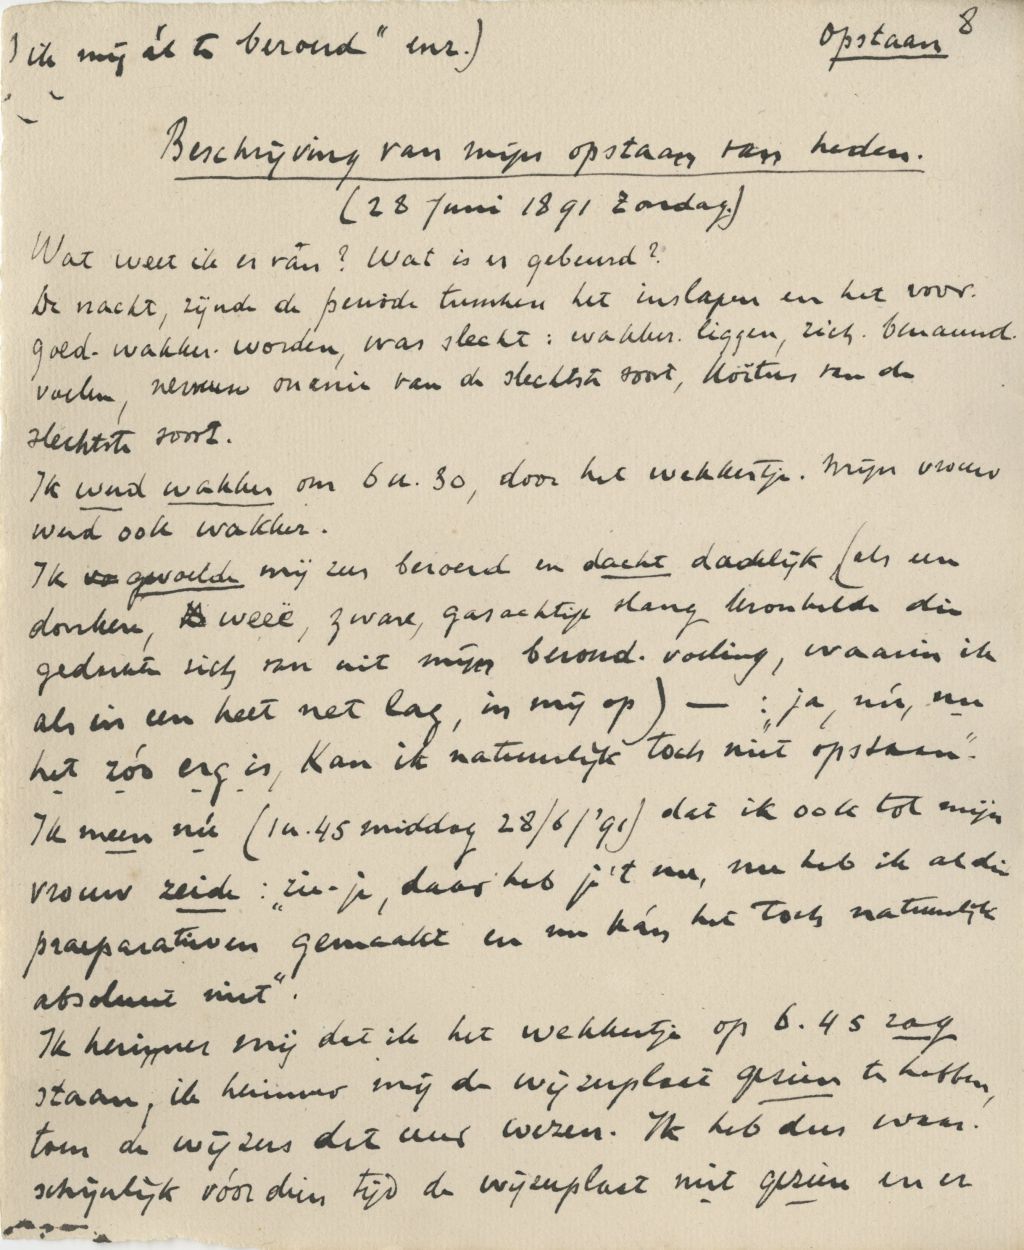 ik mij ál te beroerd" enz.)
Opstaan 8
Beschrijving van mijn opstaan van heden.
(28 Juni 1891 Zondag.)
Wat weet ik er ván? Wat is er gebeurd?
De nacht, zijnde de periode tusschen het inslapen en het voor-
goed-wakker-worden, was slecht: wakker-liggen, zich-benauwd-
voelen, nerveuse onanie van de slechtste soort, Koïtus van de
slechtste soort.
Ik werd wakker om 6 u. 30, door het wekkertje. Mijn vrouw
werd ook wakker.
Ik gevoelde mij zeer beroerd en dacht dadelijk (als een
donkere, weeë, zware, gasachtige slang kronkelde die
gedachte zich van uit mijn beroerd-voeling, waarin ik
als in een heet net lag, in mij op) — : „ja, nú, nu
het zóo erg is, kan ik natuurlijk toch niet opstaan".
Ik meen nú (1 u. 45 middag 28/6/'91) dat ik ook tot mijn
vrouw zeide: „zie-je, daar heb je 't nu, nu heb ik al die
praeparatieven gemaakt en nu kán het toch natuurlijk
absoluut niet".
Ik herinner mij dat ik het wekkertje op 6.45 zag
staan, ik herinner mij de wijzerplaat gezien te hebben,
toen de wijzers dat uur wezen. Ik heb dus waar-
schijnlijk vóór dien tijd de wijzerplaat niet gezien en er